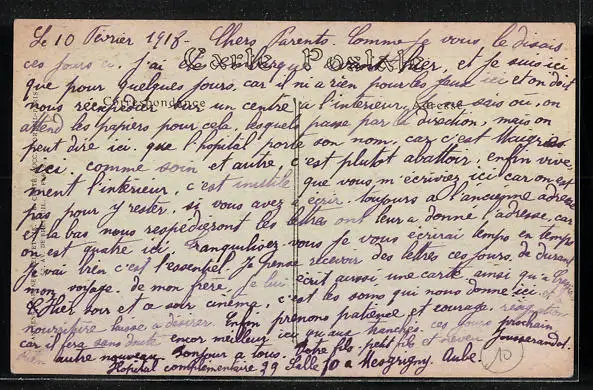 Le 10 Février 1918 - Chers Parents. Comme je vous le disais
ces jours ci. j'ai été hier, et je suis ici
Carte Postale
que pour quelques jours, car il n'i a rien pour les ici et on doit
Correspondance
nous réexpédier vers un centre à l'interieur, ne sais où, on
attend les papiers pour cela, lesquels passe par la direction, mais on
peut dire ici. que l'hopital porte son nom, car c'est Maigrie
ici, comme soin et autre, c'est plutot abattoir, enfin vive-
ment l'intérieur, c'est inutile que vous m'écrivez ici car on est
pas pour y rester, si vous avez à écrir, toujours a l'ancienne adresse
et la bas nous respédieront les lettres ont leur a donné l'adresse, car
on est quatre ici. Tranquilisez-vous je vous écrirai temps en temps
Je vai bien c'est l'essentiel. Je pense recevoir des lettres ces jours. de durant
mon voyage. de mon frère, je lui écrit aussi une carte ainsi qu'a
Hier soir et a soir cinéma, c'est les soins qui nous donne ici, et
nourriture laisse a désirer. Enfin prenons patience et courage,
car il fera sans doute encor meilleur ici qu'aux tranchés. ces jours prochain
autre nouveau. Bonjour a tous. Votre fils, petit fils et neveu Jousserandot.
Hopital complementaire 29 Salle 10 a Mesgrigny. Aube.
10